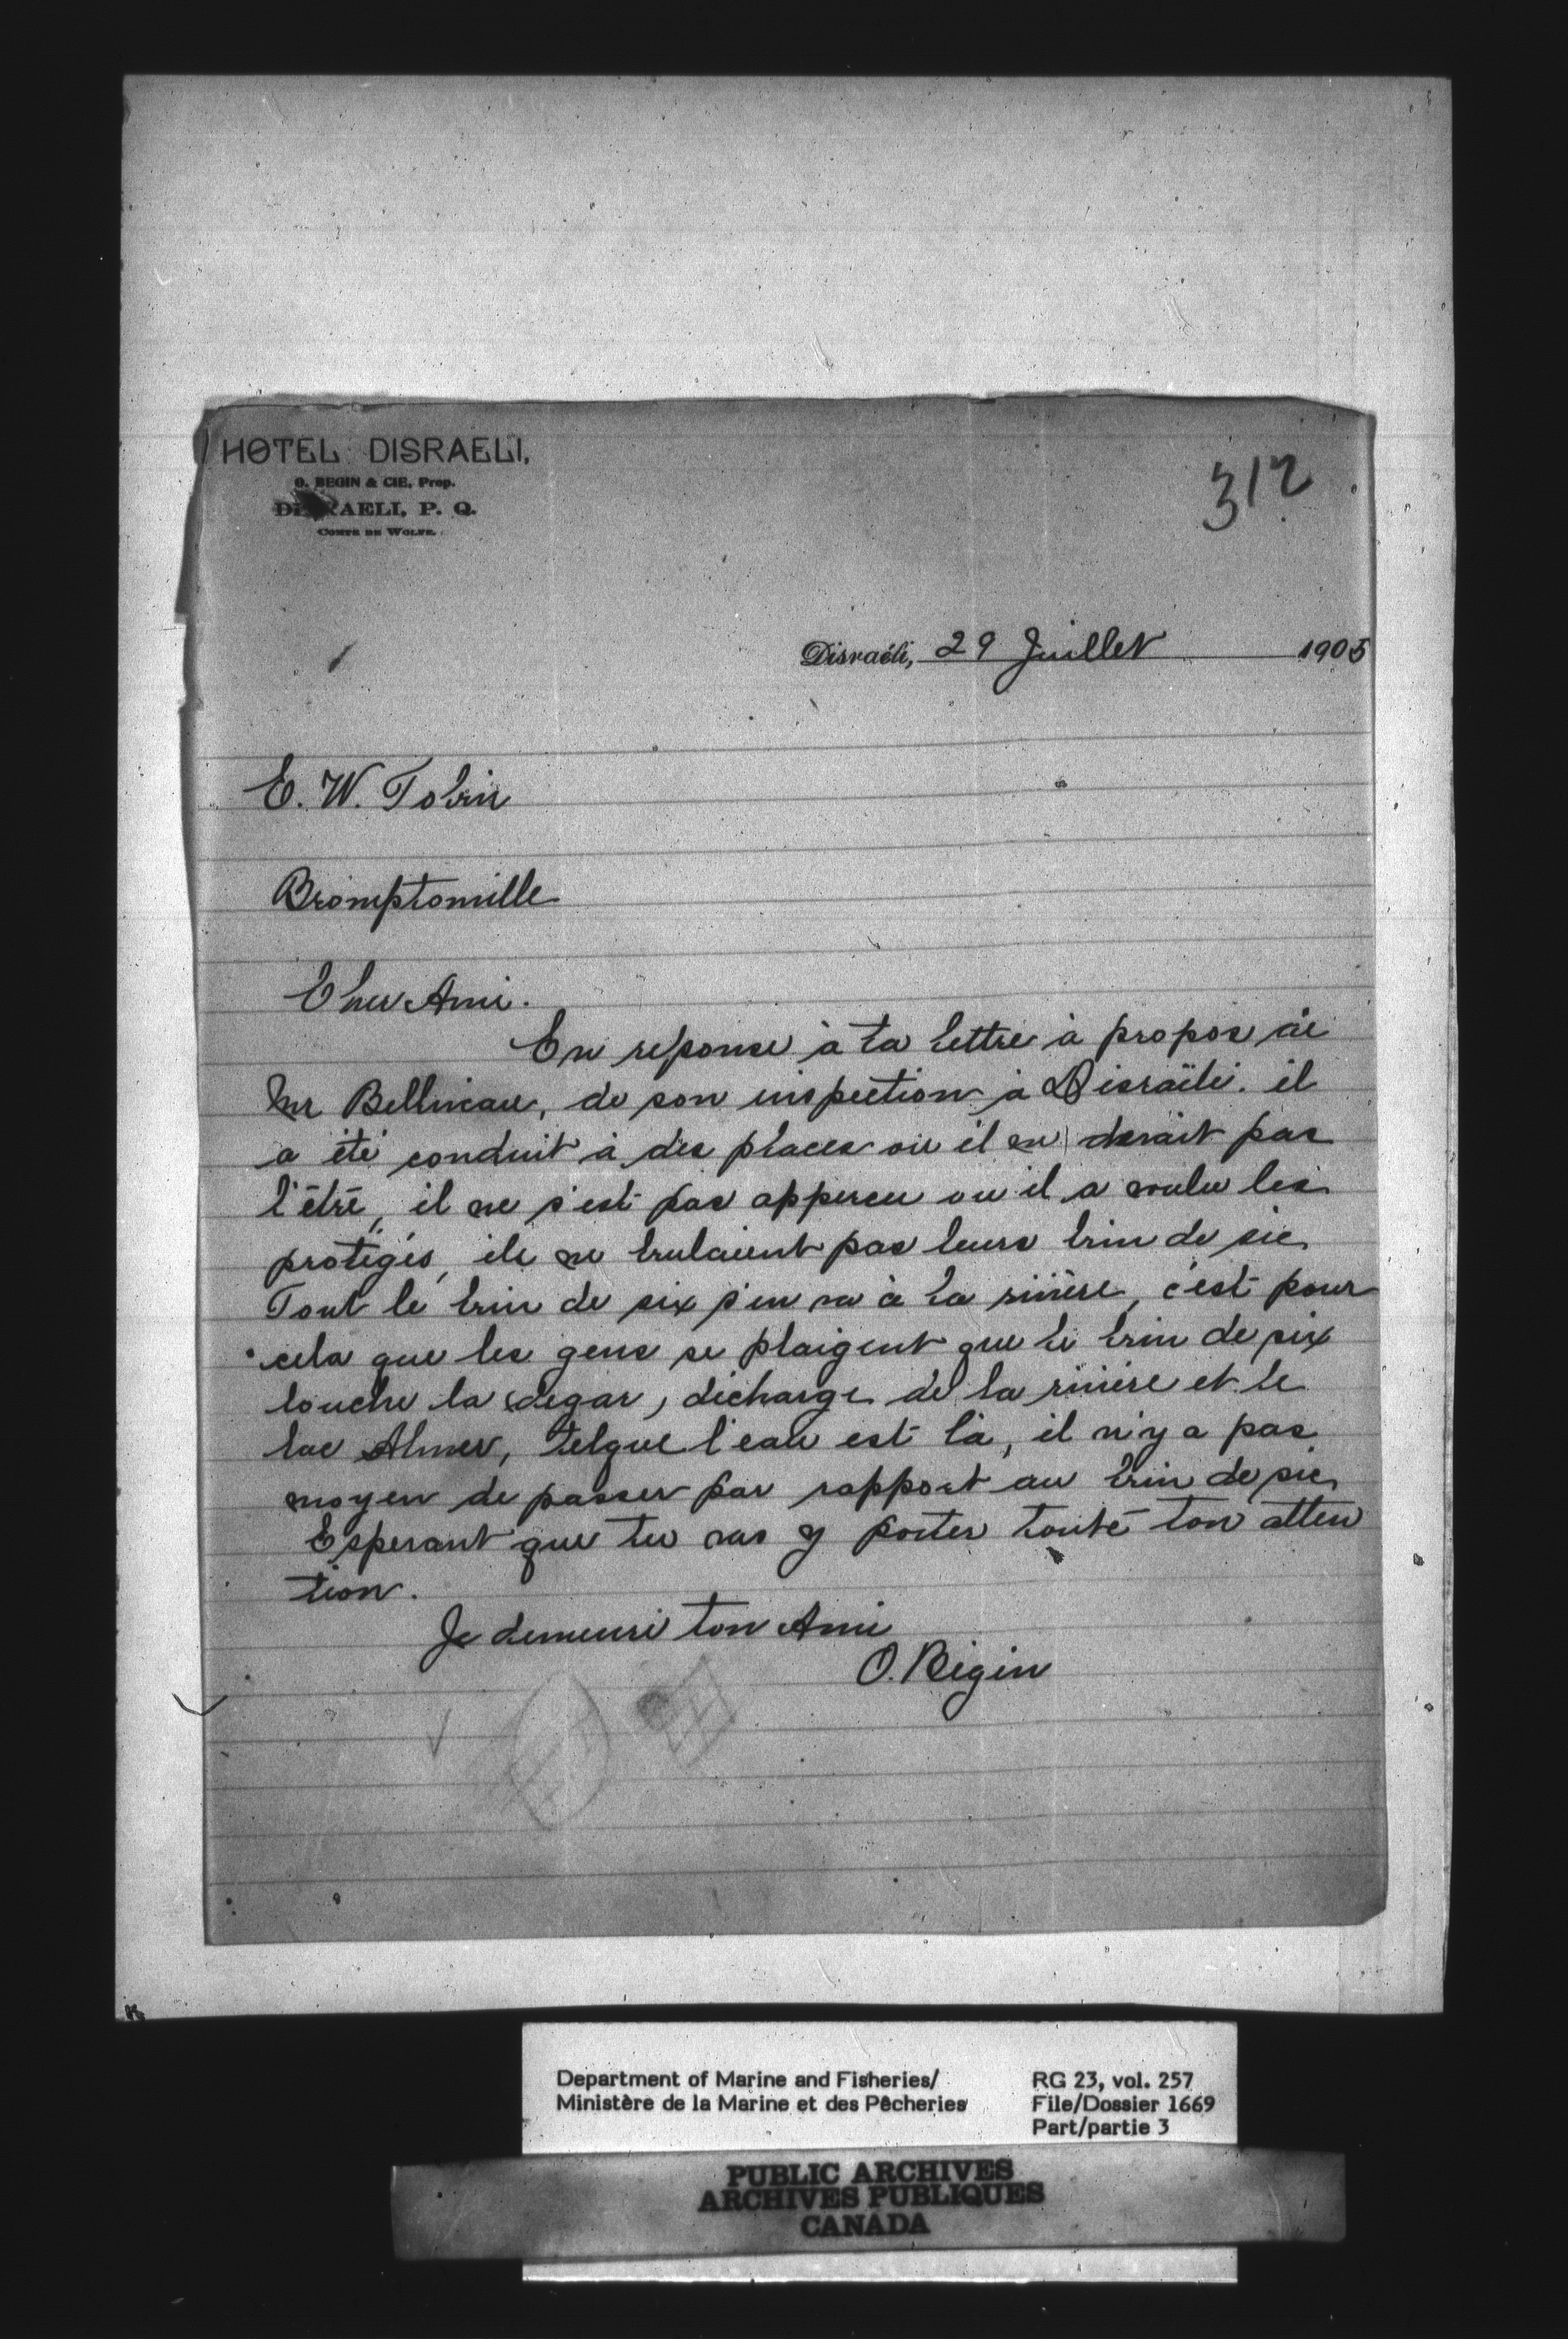 HOTEL DISRAELI,
O. BEGIN & CIE, Prop.
DISRAELI, P. Q.
COMTE DE WOLFE.
312
Disraéli, 29 Juillet 1905
E. W. Tobin
Bromptonville
Cher Ami.
En reponse à ta lettre à propos de
Mr Belliveau, de son inspection à Disraëli. il
a été conduit à des places ou il ne devait pas
l'être, il ne s'est pas appercu ou il a voulu les
protégés, ils ne brulaient pas leurs brin de sie
Tout le brin de six s'en va à la rivière, c'est pour
cela que les gens se plaigent que le brin de six
bouche la décharge de la rivière et le
lac Almer, telque l'eau est là, il n'y a pas
moyen de passer par rapport au brin de sie
Esperant que tu vas y porter toute ton atten
tion.
Je demeure ton Ami
O. Bégin
Department of Marine and Fisheries/
Ministère de la Marine et des Pêcheries
RG 23, vol. 257
File/Dossier 1669
Part/partie 3
PUBLIC ARCHIVES
ARCHIVES PUBLIQUES
CANADA